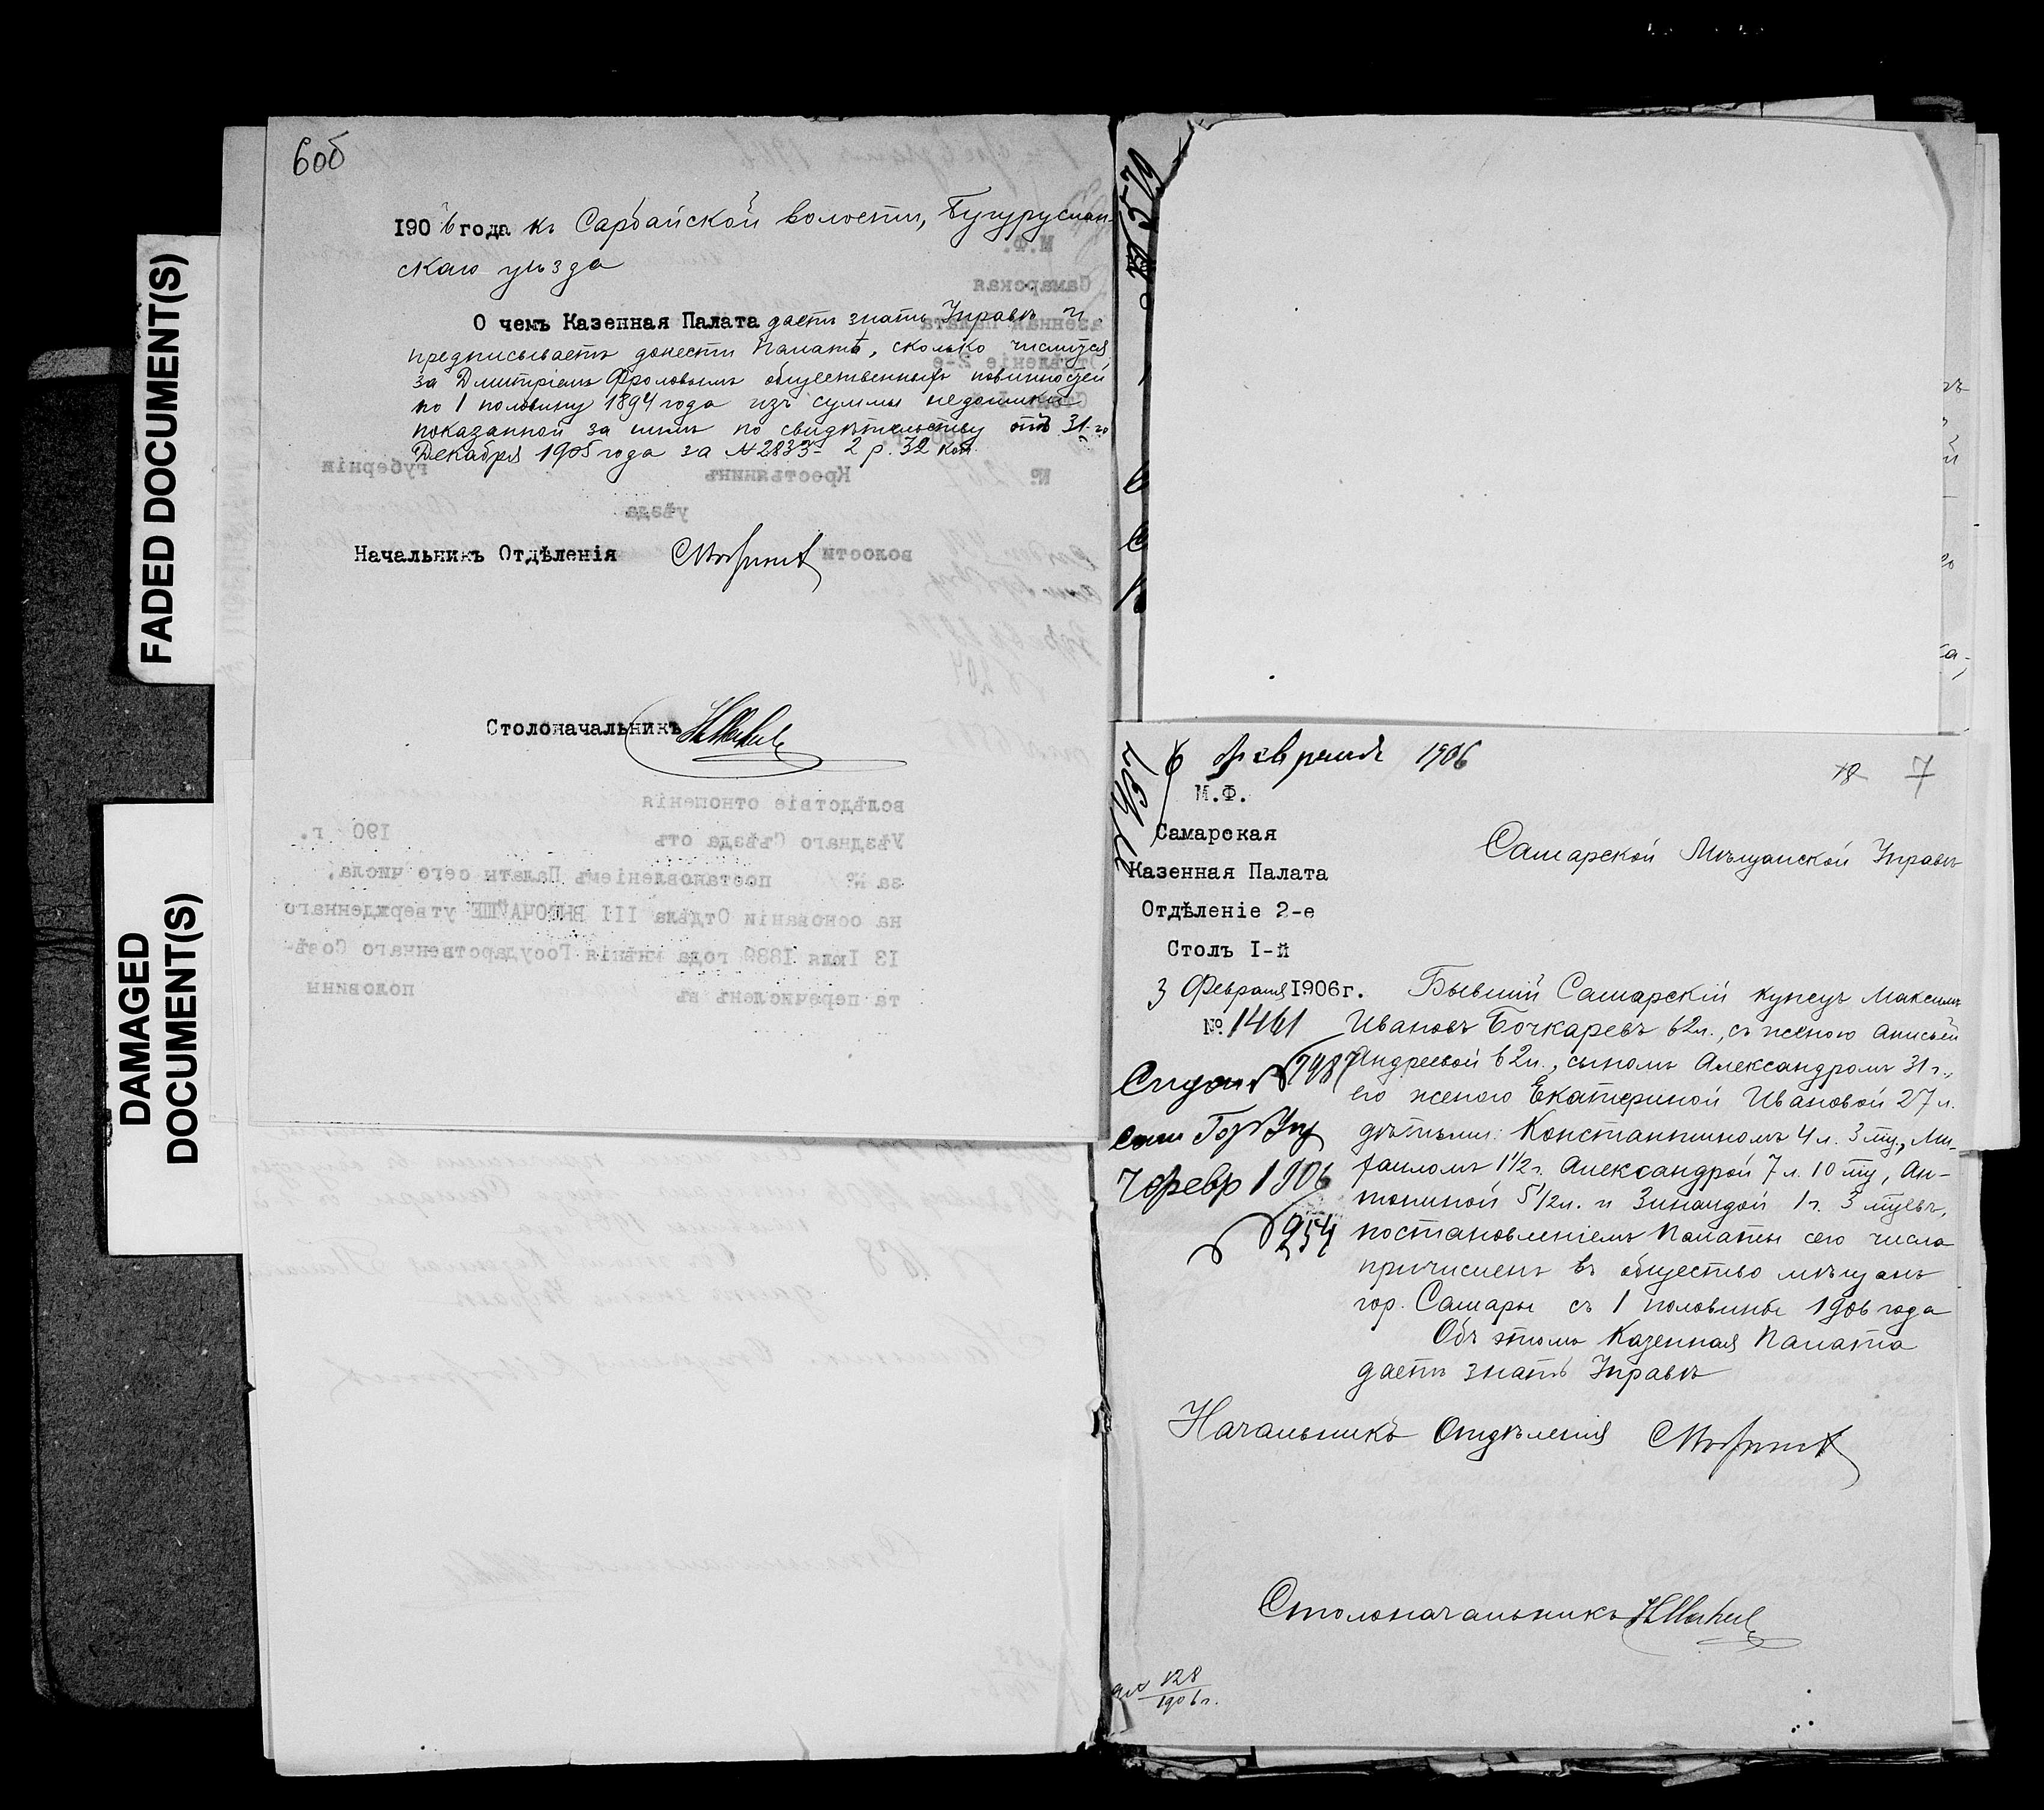 FADED DOCUMENT(S)
DAMAGED
DOCUMENT(S)
6об
1906 года къ Сарбайской волости, Бугуруслан-
скаго уѣзда
О чемъ Казенная Палата даетъ знать Управѣ и
предписываетъ донести Палатѣ, сколько числится
за Дмитріемъ Фроловымъ общественныхъ повинностей
по 1 половину 1894 года изъ суммы недоимки
показанной за нимъ по свидѣтельству отъ 31-го
Декабря 1905 года за № 2833 2 р. 32 коп.
Начальникъ Отдѣленія
Столоначальникъ
6 февраля 1906
18 7
М.Ф.
Самарская
Казенная Палата
Отдѣленіе 2-е
Столъ I-й
3 Февраля 1906г.
№ 1461
Самарской Мѣщанской Управѣ
Бывшій Самарскій купецъ Максимъ
Ивановъ Бочкаревъ 62л., съ женою Анисьей
Андреевой 62л., сыномъ Александромъ 31г.,
его женою Екатериной Ивановой 27л.
дѣтьми: Константиномъ 4л. 3 мц., Ми-
хаиломъ 1½г. Александрой 7л. 10 мц, Ан-
тониной 5½л. и Зинаидой 1г. 3 мцевъ,
постановленіемъ Палаты сего числа
причисленъ въ общество мѣщанъ
гор. Самары съ 1 половины 1906 года
Объ этомъ Казенная Палата
даетъ знать Управѣ
7 февр 1906
№ 254
Начальникъ Отдѣленія
Столоначальникъ
128
1906г.